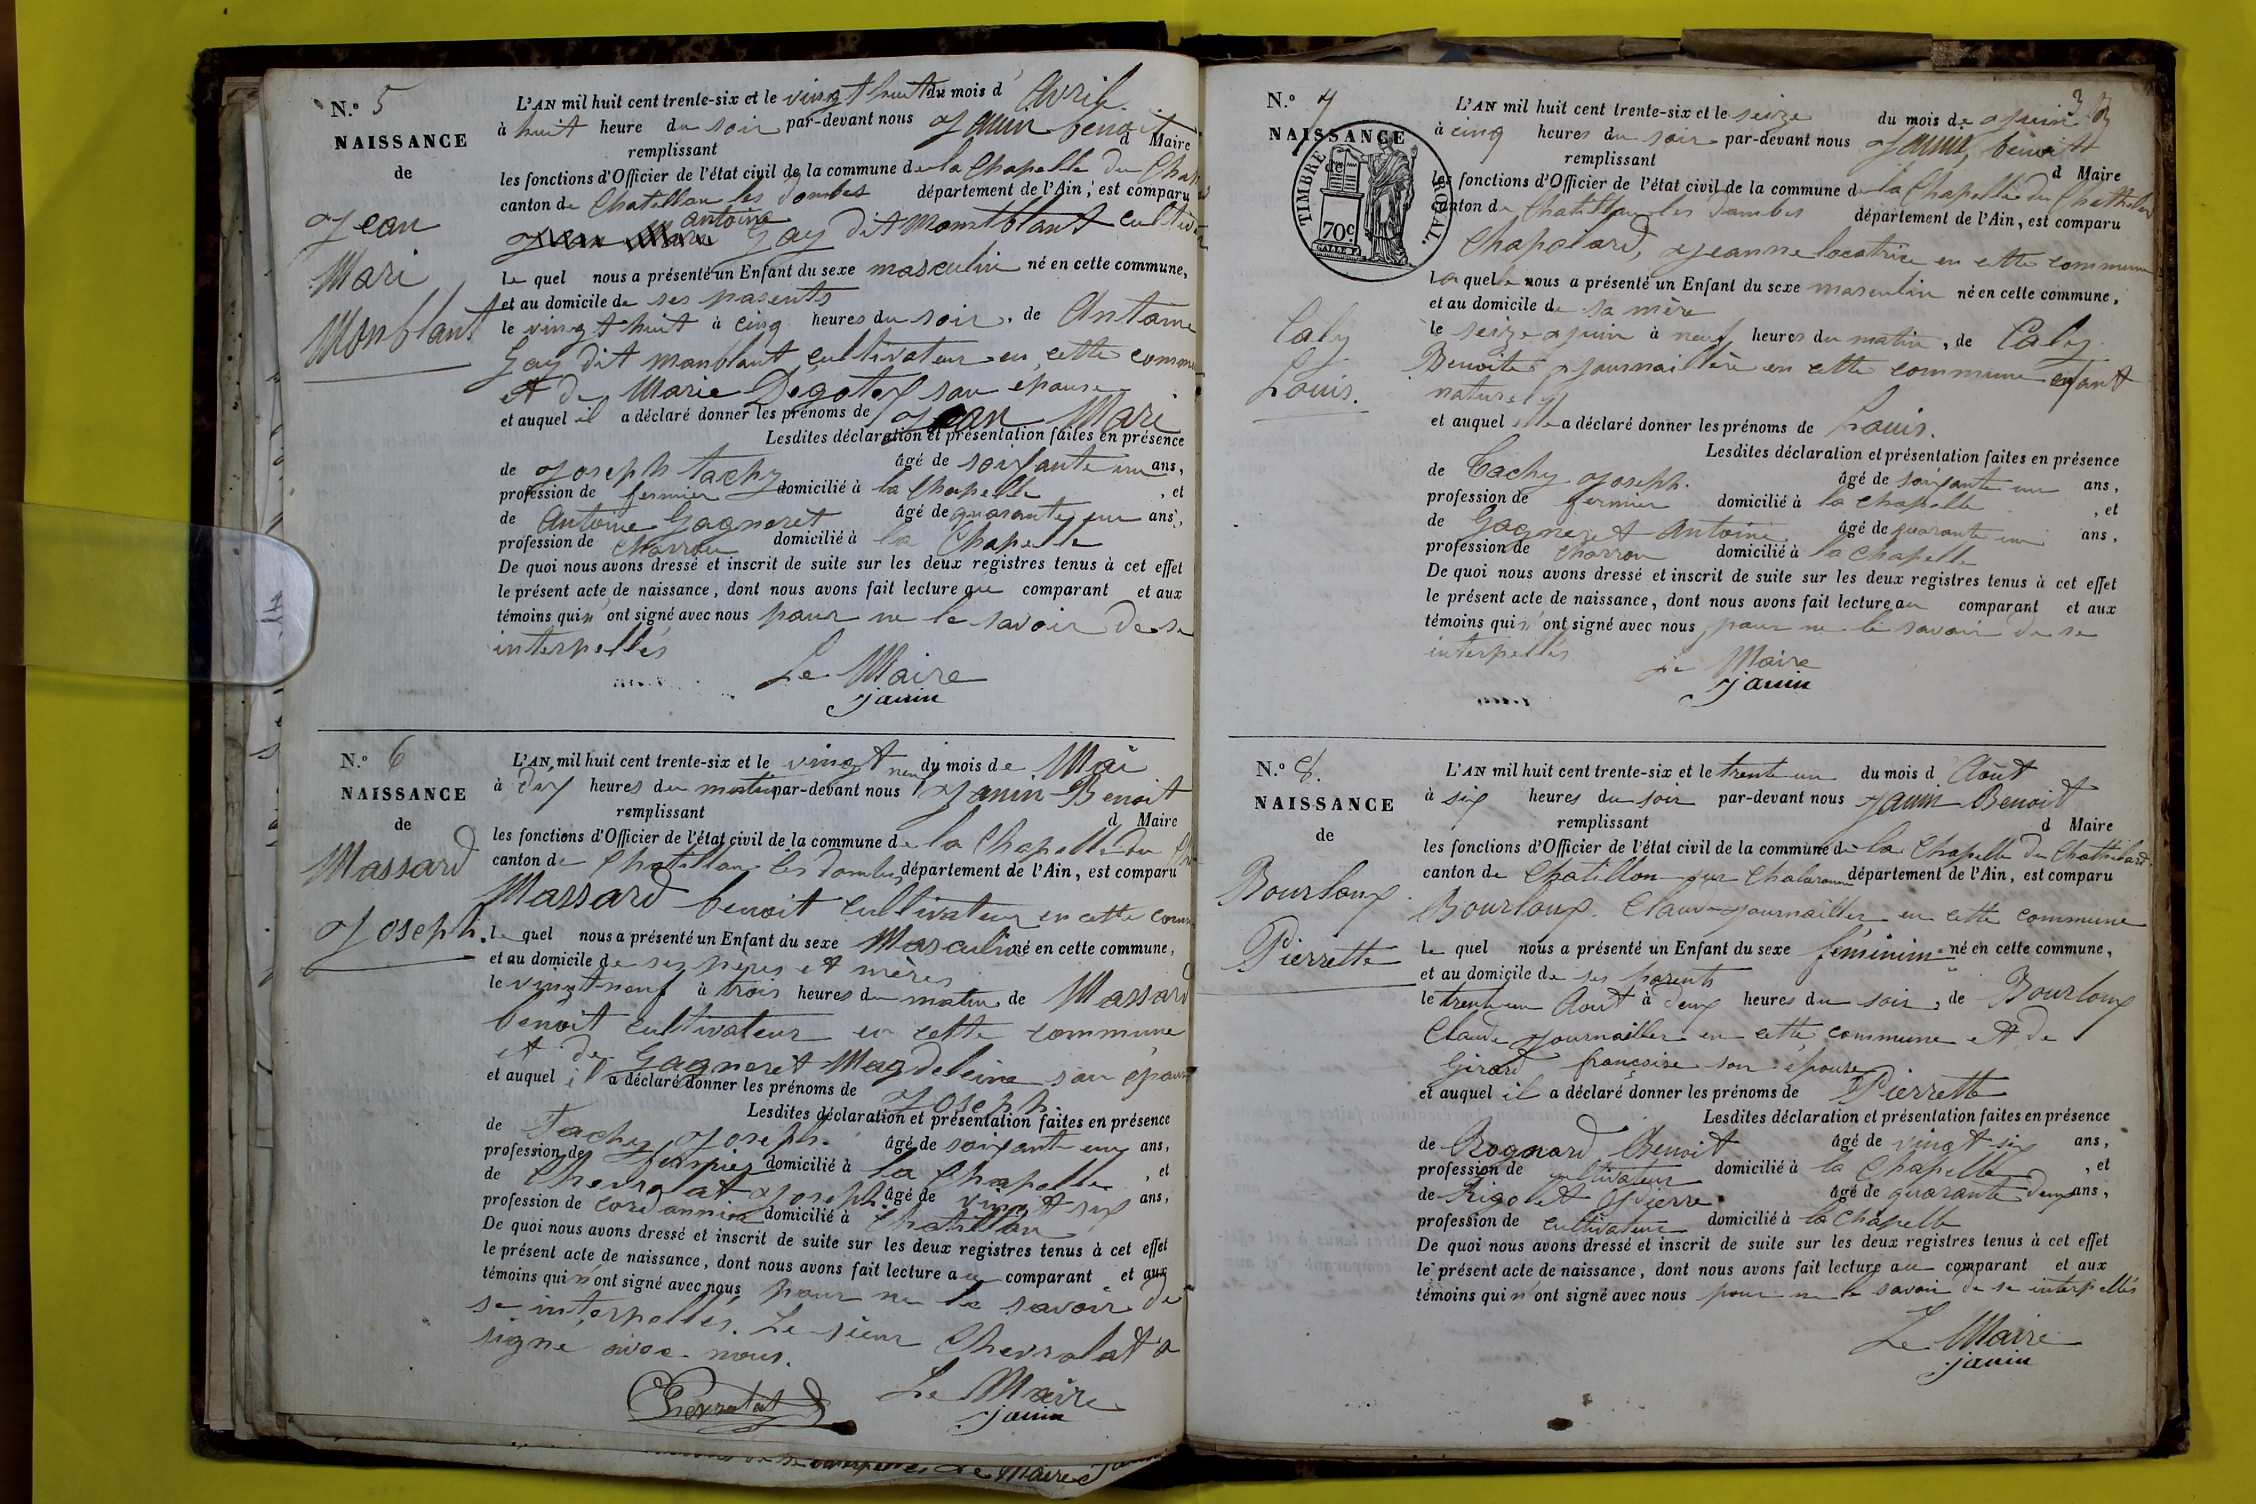 N.° 5
NAISSANCE
de
Jean
Mari
Monblant
L'AN mil huit cent trente-six et le vingt huit du mois d'Avril
à huit heure du soir par-devant nous Janin benoit
d Maire
remplissant
les fonctions d'Officier de l'état civil de la commune de la Chapelle du
canton de Chatillon les dombes département de l'Ain, est comparu
antoine
Gay dit Montblant
le quel nous a présenté un Enfant du sexe masculin né en cette commune,
et au domicile de ses parents
le vingt huit à cinq heures du soir, de Antoine
Gay dit monblant cultivateur en cette
et de Marie son épouse
et auquel il a déclaré donner les prénoms de Jean Mari
Lesdites déclaration et présentation faites en présence
de Joseph tachy âgé de soixante un ans,
profession de fermier domicilié à la Chapelle , et
de Antoine Gagneret âgé de quarante un ans,
profession de Charron domicilié à la Chapelle
De quoi nous avons dressé et inscrit de suite sur les deux registres tenus à cet effet
le présent acte de naissance, dont nous avons fait lecture au comparant et aux
témoins qui n'ont signé avec nous pour ne le savoir de se
interpellés
Le Maire
janin
N.° 6
NAISSANCE
de
Massard
Joseph.
L'AN mil huit cent trente-six et le vingt neuf du mois de Mai
à dix heures du matin par-devant nous Janin Benoit
d Maire
remplissant
les fonctions d'Officier de l'état civil de la commune de la Chapelle du
canton de Chatillon les dombes département de l'Ain, est comparu
Massard benoit cultivateur en cette
le quel nous a présenté un Enfant du sexe Masculin né en cette commune,
et au domicile de ses pères et mères
le vingt neuf à trois heures du matin de Massard
benoit cultivateur en cette commune
et de Gagneret Magdeleine son
et auquel il a déclaré donner les prénoms de Joseph
Lesdites déclaration et présentation faites en présence
de Tachy Joseph. âgé de soixante un ans,
profession de fermier domicilié à la Chapelle , et
de Chevrolat Joseph. âgé de vingt six ans,
profession de cordonnier domicilié à Chatillon
De quoi nous avons dressé et inscrit de suite sur les deux registres tenus à cet effet
le présent acte de naissance, dont nous avons fait lecture au comparant et aux
témoins qui n'ont signé avec nous pour ne le savoir de
se interpellés. Le sieur Chevrolat a
signé avec nous.
Chevrolat
Le Maire
janin
N.° 7
NAISSANCE
de
TIMBRE ROYAL.
70c
Caly
Louis.
L'AN mil huit cent trente-six et le seize du mois de Juin
à cinq heures du soir par-devant nous Janin, benoit
d Maire
remplissant
les fonctions d'Officier de l'état civil de la commune de la Chapelle du Chathelard
canton de Chatillon les dombes département de l'Ain, est comparu
Chapolard, Jeanne locatrice en cette commune
la quelle nous a présenté un Enfant du sexe masculin né en cette commune,
et au domicile de sa mère
le seize Juin à neuf heures du matin, de Caly
Benoite, Journaillère en cette commune enfant
naturel
et auquel elle a déclaré donner les prénoms de Louis.
Lesdites déclaration et présentation faites en présence
de Tachy Joseph. âgé de soixante un ans,
profession de fermier domicilié à la chapelle , et
de Gagneret Antoine âgé de quarante un ans,
profession de Charron domicilié à la Chapelle
De quoi nous avons dressé et inscrit de suite sur les deux registres tenus à cet effet
le présent acte de naissance, dont nous avons fait lecture au comparant et aux
témoins qui n'ont signé avec nous pour ne le savoir de se
interpellés
Le Maire
janin
N.° 8.
NAISSANCE
de
Bourloux
Pierrette
L'AN mil huit cent trente-six et le trente un du mois d Août
à six heures du soir par-devant nous Janin Benoit
d Maire
remplissant
les fonctions d'Officier de l'état civil de la commune de la Chapelle du Chathelard
canton de Chatillon sur Chalaronne département de l'Ain, est comparu
Bourloux. Claude Journaillier en cette commune
Le quel nous a présenté un Enfant du sexe féminin né en cette commune,
et au domicile de ses parents
le trente un Août à deux heures du soir, de Bourloux
Claude Journaillier en cette commune et de
Girard françoise son épouse
et auquel il a déclaré donner les prénoms de Pierrette
Lesdites déclaration et présentation faites en présence
de Rognard Benoit âgé de vingt six ans,
profession de cultivateur domicilié à la Chapelle , et
de Rigolet Pierre âgé de quarante deux ans,
profession de cultivateur domicilié à la Chapelle
De quoi nous avons dressé et inscrit de suite sur les deux registres tenus à cet effet
le présent acte de naissance, dont nous avons fait lecture au comparant et aux
témoins qui n'ont signé avec nous pour ne le savoir de se interpellés
Le Maire
janin